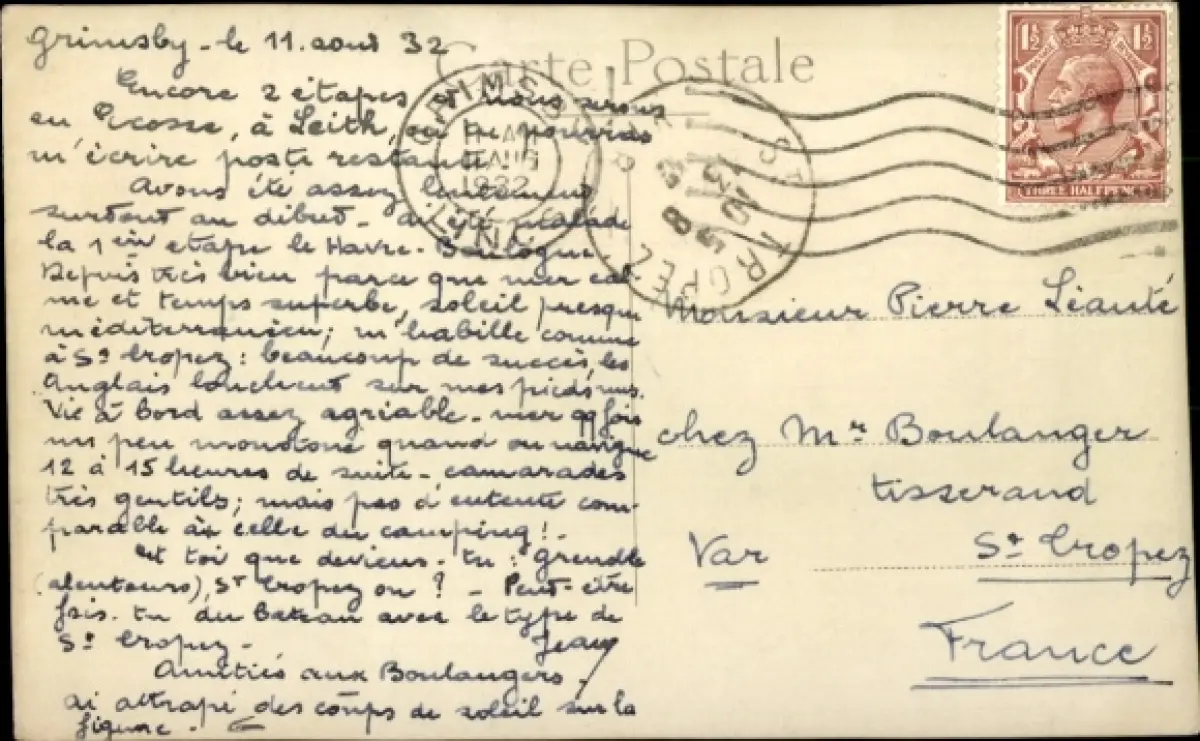 Grimsby - le 11 aout 32
Carte Postale
Encore 2 étapes et nous serons
en Ecosse, à Leith, ou tu pourras
m'écrire poste restante.
Avons été assez lentement
surtout au début - ai été malade
la 1ère etape le Havre - Boulogne.
Depuis très bien parce que mer cal-
me et temps superbe, soleil presque
méditerranéen; m'habille comme
à St Tropez: beaucoup de succès, les
Anglais louchent sur mes pieds nus.
Vie à bord assez agréable - mer qq fois
un peu monotone quand on navigue
12 à 15 heures de suite - camarades
très gentils; mais pas d'entente com-
parable à celle du camping! -
Et toi que deviens-tu: 
(alentours), St Tropez ou ? - Peut-etre
fais-tu du Bateau avec le type de
St Tropez - Jean
Amitiés aux Boulangers -
ai attrapé des coups de soleil sur la
figure -
GRIMSBY
AUG
1932
ST TROPEZ
1½ 1½
THREE HALFPENCE
Monsieur Pierre Léauté
chez Mr Boulanger
tisserand
St Tropez
Var
France